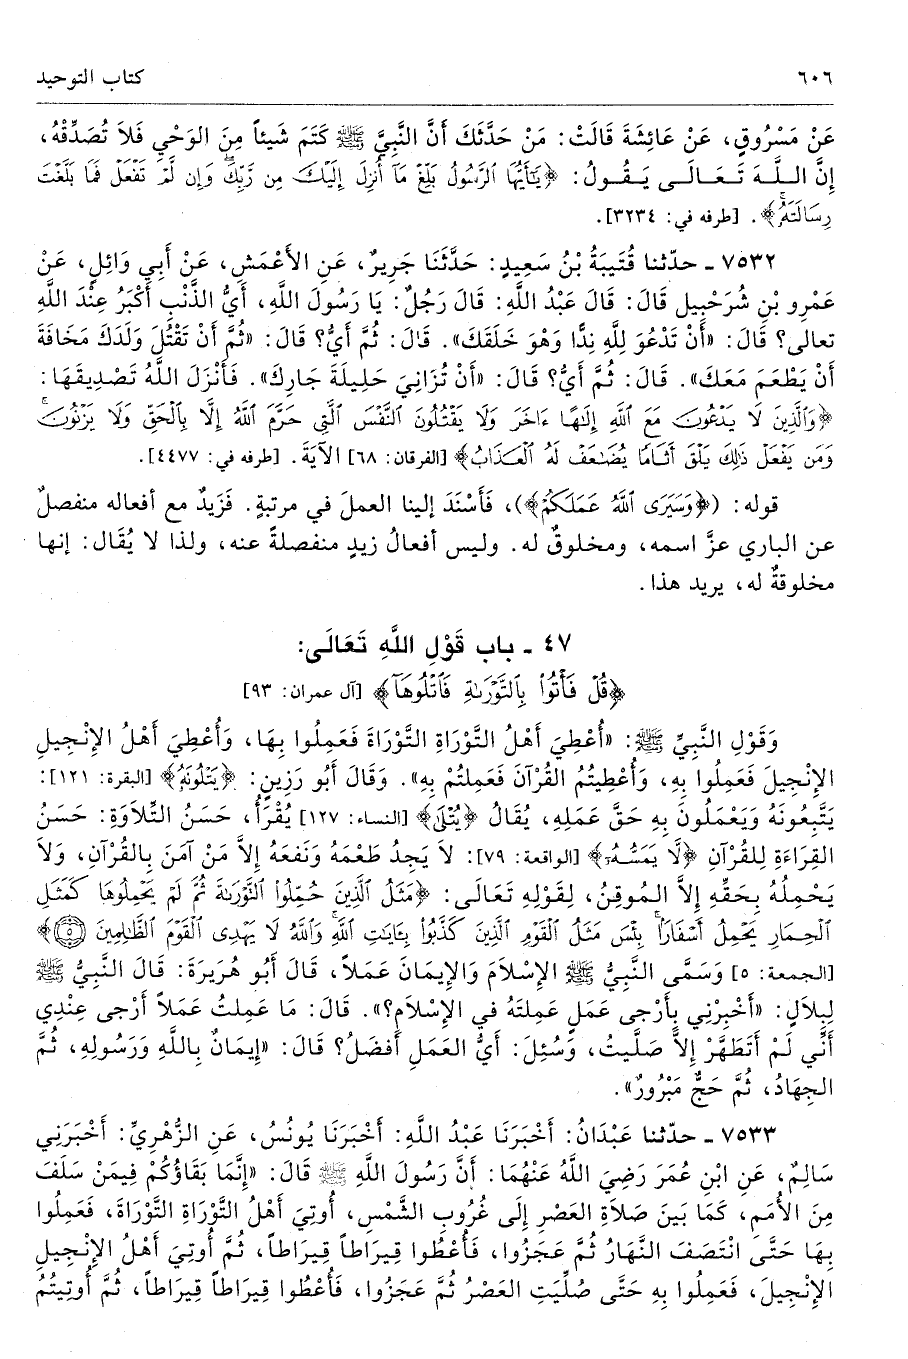 ٦٠٦ كتاب التوحيد
عَنْ مَسْرُوقٍ، عَنْ عَائِشَةَ قَالَتْ: مَنْ حَدَّثَكَ أَنَّ النَّبِيَّ ﷺ كَتَمَ شَيْئاً مِنَ الوَحْيِ فَلاَ تُصَدِّقْهُ،
إِنَّ اللَّهَ تَعَالَى يَقُولُ: ﴿يَٰٓأَيُّهَا ٱلرَّسُولُ بَلِّغْ مَآ أُنزِلَ إِلَيْكَ مِن رَّبِّكَۖ وَإِن لَّمْ تَفْعَلْ فَمَا بَلَّغْتَ
رِسَالَتَهُۥۚ﴾. [طرفه في: ٣٢٣٤].
٧٥٣٢ ـ حدّثنا قُتَيبَةُ بْنُ سَعِيدٍ: حَدَّثَنَا جَرِيرٌ، عَنِ الأَعْمَشِ، عَنْ أَبِي وَائِلٍ، عَنْ
عَمْرِو بْنِ شُرَحْبِيل قَالَ: قَالَ عَبْدُ اللَّهِ: قَالَ رَجُلٌ: يَا رَسُولَ اللَّهِ، أَيُّ الذَّنْبِ أَكْبَرُ عِنْدَ اللَّهِ
تعالى؟ قَالَ: «أَنْ تَدْعُوَ لِلَّهِ نِدًّا وَهْوَ خَلَقَكَ». قَالَ: ثُمَّ أَيُّ؟ قَالَ: «ثُمَّ أَنْ تَقْتُلَ وَلَدَكَ مَخَافَةَ
أَنْ يَطْعَمَ مَعَكَ». قَالَ: ثُمَّ أَيُّ؟ قَالَ: «أَنْ تُزَانِيَ حَلِيلَةَ جَارِكَ». فَأَنْزَلَ اللَّهُ تَصْدِيقَهَا:
﴿وَٱلَّذِينَ لَا يَدْعُونَ مَعَ ٱللَّهِ إِلَٰهًا ءَاخَرَ وَلَا يَقْتُلُونَ ٱلنَّفْسَ ٱلَّتِى حَرَّمَ ٱللَّهُ إِلَّا بِٱلْحَقِّ وَلَا يَزْنُونَۚ
وَمَن يَفْعَلْ ذَٰلِكَ يَلْقَ أَثَامًا يُضَٰعَفْ لَهُ ٱلْعَذَابُ﴾ [الفرقان: ٦٨] الآيَةَ. [طرفه في: ٤٤٧٧].
قوله: (﴿وَسَيَرَى ٱللَّهُ عَمَلَكُمْ﴾)، فَأَسْنَدَ إلينا العملَ في مرتبةٍ. فَزَيدٌ مع أفعاله منفصلٌ
عن الباري عزَّ اسمه، ومخلوقٌ له. وليس أفعالُ زيدٍ منفصلةً عنه، ولذا لا يُقَال: إنها
مخلوقةٌ له، يريد هذا.
٤٧ ـ باب قَوْلِ اللَّهِ تَعَالَى:
﴿قُلْ فَأْتُوا۟ بِٱلتَّوْرَىٰةِ فَٱتْلُوهَآ﴾ [آل عمران: ٩٣]
وَقَوْلِ النَّبِيِّ ﷺ: «أُعْطِيَ أَهْلُ التَّوْرَاةِ التَّوْرَاةَ فَعَمِلُوا بِهَا، وَأُعْطِيَ أَهْلُ الإِنْجِيلِ
الإِنْجِيلَ فَعَمِلُوا بِهِ، وَأُعْطِيتُمُ القُرْآنَ فَعَمِلتُمْ بِهِ». وَقَالَ أَبُو رَزِينٍ: ﴿يَتْلُونَهُ﴾ [البقرة: ١٢١]:
يَتَّبِعُونَهُ وَيَعْمَلُونَ بِهِ حَقَّ عَمَلِهِ، يُقَالُ ﴿يُتْلَىٰ﴾ [النساء: ١٢٧] يُقْرَأُ، حَسَنُ التِّلاَوَةِ: حَسَنُ
القِرَاءَةِ لِلقُرْآنِ ﴿لَّا يَمَسُّهُۥٓ﴾ [الواقعة: ٧٩]: لاَ يَجِدُ طَعْمَهُ وَنَفعَهُ إِلاَّ مَنْ آمَنَ بِالقُرْآنِ، وَلاَ
يَحْمِلُهُ بِحَقِّهِ إِلاَّ المُوقِنُ، لِقَوْلِهِ تَعَالَى: ﴿مَثَلُ ٱلَّذِينَ حُمِّلُوا۟ ٱلتَّوْرَىٰةَ ثُمَّ لَمْ يَحْمِلُوهَا كَمَثَلِ
ٱلْحِمَارِ يَحْمِلُ أَسْفَارًۢاۚ بِئْسَ مَثَلُ ٱلْقَوْمِ ٱلَّذِينَ كَذَّبُوا۟ بِـَٔايَٰتِ ٱللَّهِۚ وَٱللَّهُ لَا يَهْدِى ٱلْقَوْمَ ٱلظَّٰلِمِينَ ٥﴾
[الجمعة: ٥] وَسَمَّى النَّبِيُّ ﷺ الإِسْلاَمَ وَالإِيمَانَ عَمَلاً، قَالَ أَبُو هُرَيرَةَ: قَالَ النَّبِيُّ ﷺ
لِبِلاَلٍ: «أَخْبِرْنِي بِأَرْجى عَمَلٍ عَمِلتَهُ في الإِسْلاَمِ؟». قَالَ: مَا عَمِلتُ عَمَلاً أَرْجى عِنْدِي
أَنِّي لَمْ أَتَطَهَّرْ إِلاَّ صَلَّيتُ، وَسُئِلَ: أَيُّ العَمَلِ أَفضَلُ؟ قَالَ: «إِيمَانٌ بِاللَّهِ وَرَسُولِهِ، ثُمَّ
الجِهَادُ، ثُمَّ حَجٌّ مَبْرُورٌ».
٧٥٣٣ ـ حدّثنا عَبْدَانُ: أَخبَرَنَا عَبْدُ اللَّهِ: أَخبَرَنَا يُونُسُ، عَنِ الزُّهْرِيِّ: أَخْبَرَنِي
سَالِمٌ، عَنِ ابْنِ عُمَرَ رَضِيَ اللَّهُ عَنْهُمَا: أَنَّ رَسُولَ اللَّهِ ﷺ قَالَ: «إِنَّمَا بَقَاؤُكُمْ فِيمَنْ سَلَفَ
مِنَ الأُمَمِ، كَمَا بَينَ صَلاَةِ العَصْرِ إِلَى غُرُوبِ الشَّمْسِ، أُوتِيَ أَهْلُ التَّوْرَاةِ التَّوْرَاةَ، فَعَمِلُوا
بِهَا حَتَّى انْتَصَفَ النَّهَارُ ثُمَّ عَجَزُوا، فَأُعْطُوا قِيرَاطاً قِيرَاطاً، ثُمَّ أُوتِيَ أَهْلُ الإِنْجِيلِ
الإِنْجِيلَ، فَعَمِلُوا بِهِ حَتَّى صُلِّيَتِ العَصْرُ ثُمَّ عَجَزُوا، فَأُعْطُوا قِيرَاطاً قِيرَاطاً، ثُمَّ أُوتِيتُمُ